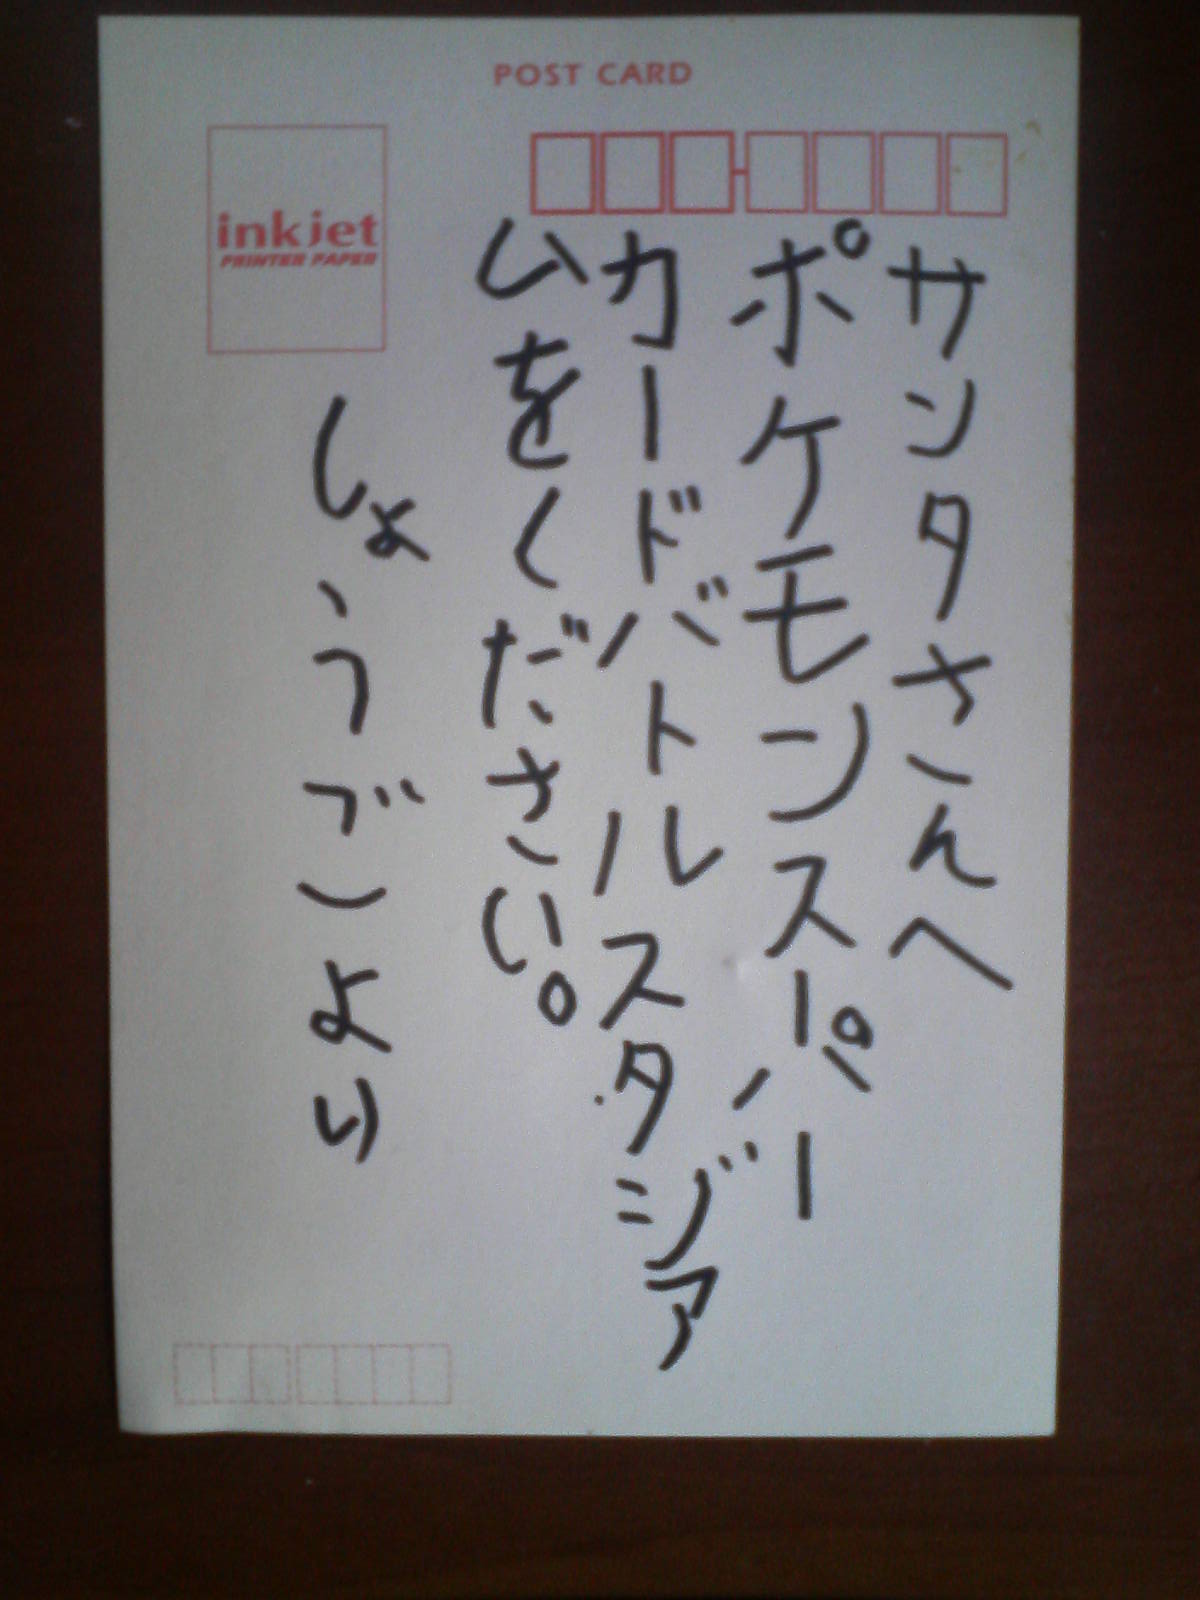 POST CARD
inkjet
PRINTER PAPER
サンタさんへ
ポケモンスーパー
カードバトルスタジア
ムをください。
しょうごより